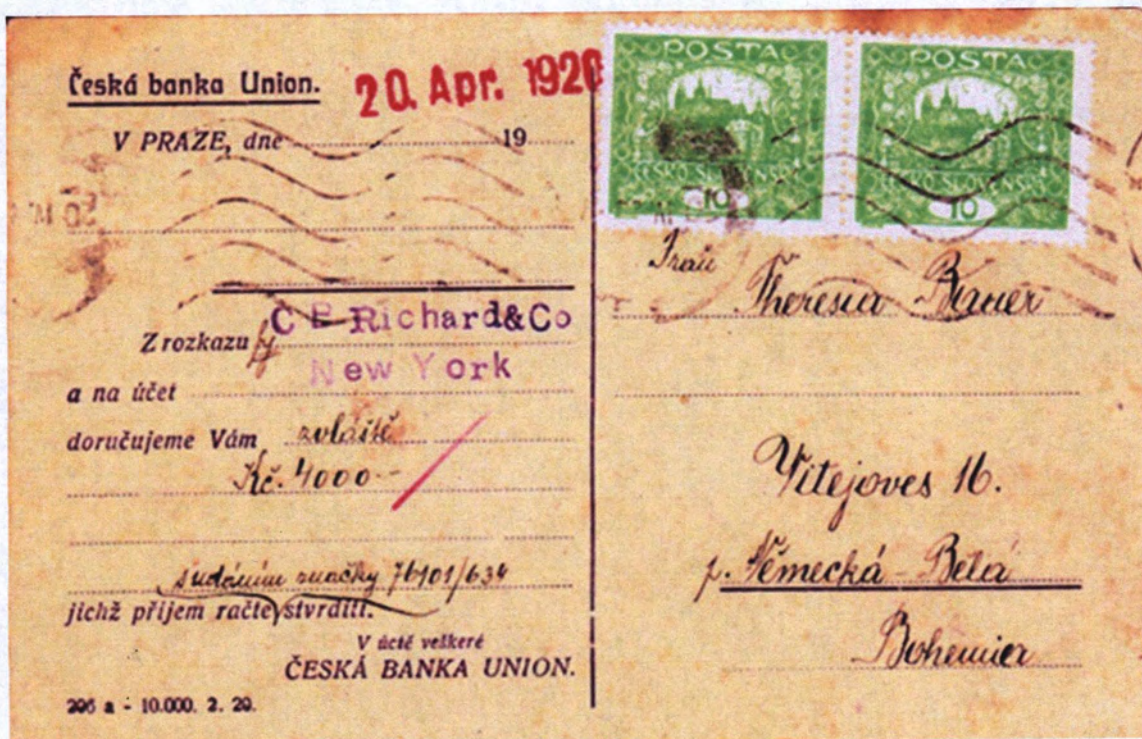 Česká banka Union.
20. Apr. 1920
V PRAZE, dne 19
Z rozkazu C B Richard&Co
New York
a na účet
doručujeme Vám zvláště
Kč. 4000.-
s udáním značky 76101/634
jichž příjem račte stvrditi.
V úctě veškeré
ČESKÁ BANKA UNION.
205 a - 10.000. 2. 20.
POSTA
ČESKO-SLOVENSKÁ
10
POSTA
ČESKO-SLOVENSKÁ
10
Frau
Theresia Bauer
Vitejoves 16.
p. Německá-Bělá
Bohemier